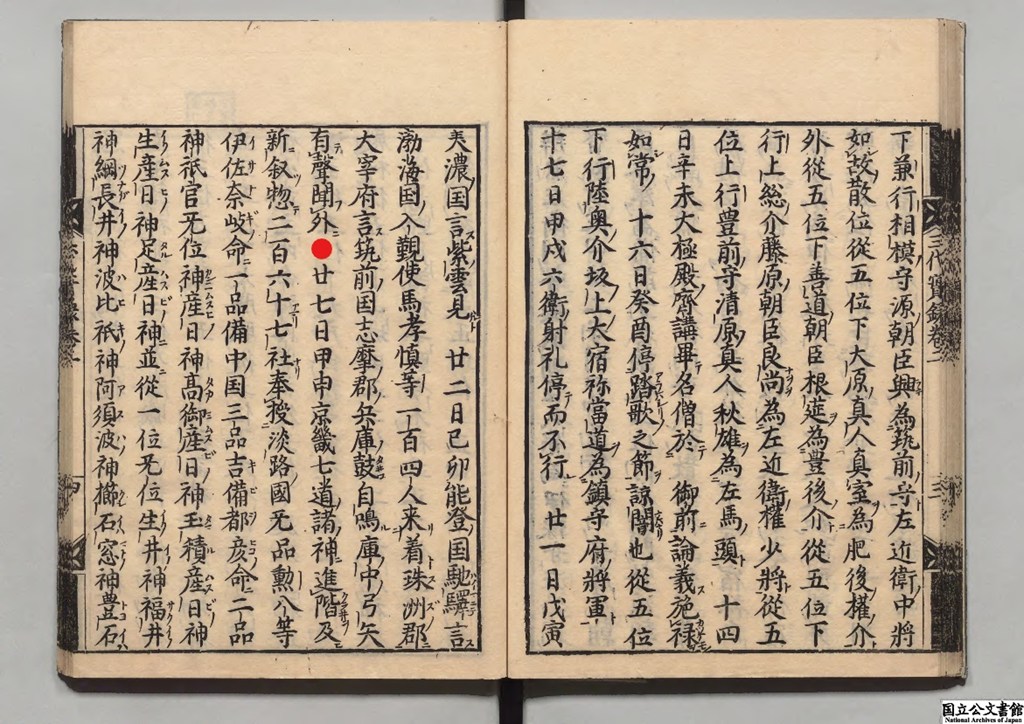 下兼行相模守源朝臣興為筑前守左近衛中将
如故散位從五位下大原真人真室為肥後権介
外從五位下善道朝臣根莚為豊後介從五位下
行上総介藤原朝臣良尚為左近衛権少将從五
位上行豊前守清原真人秋雄為左馬頭十四
日辛未大極殿齋講畢名僧於御前論義施禄
如常十六日癸酉停踏歌之節諒闇也從五位
下行陸奥介坂上大宿祢當道為鎮守府将軍
十七日甲戌六衛射礼停而不行廿一日戊寅
美濃国言紫雲見廿二日己卯能登国馳驛言
渤海国入覲使馬孝慎等一百四人来着珠洲郡
大宰府言筑前国志摩郡兵庫鼓自鳴庫中弓矢
有聲聞外廿七日甲申京畿七道諸神進階及
新叙惣二百六十七社奉授淡路國无品勲八等
伊佐奈岐命一品備中国三品吉備都彦命二品
神祇官无位神産日神高御産日神玉積産日神
生産日神足産日神並從一位无位生井神福井
神綱長井神波比祇神阿須波神櫛石窓神豊石
三代實録巻二
国立公文書館
National Archives of Japan